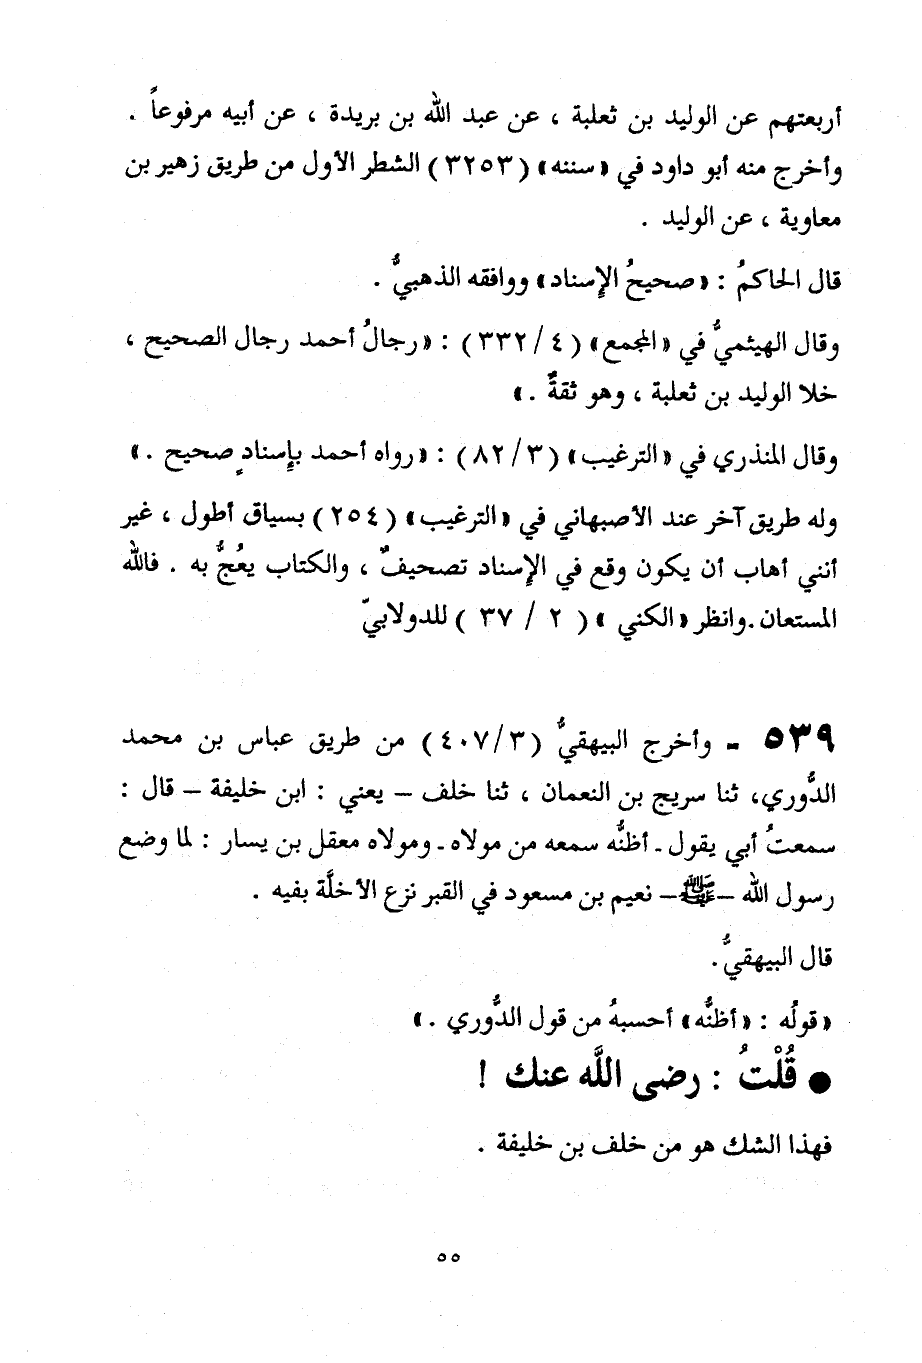 أربعتهم عن الوليد بن ثعلبة ، عن عبد الله بن بريدة ، عن أبيه مرفوعاً .
وأخرج منه أبو داود في «سننه» (٣٢٥٣) الشطر الأول من طريق زهير بن
معاوية ، عن الوليد .
قال الحاكمُ : «صحيحُ الإسناد» ووافقه الذهبيُّ .
وقال الهيثميُّ في «المجمع» (٣٣٢/٤) : «رجالُ أحمد رجال الصحيح ،
خلا الوليد بن ثعلبة ، وهو ثقةٌ .»
وقال المنذري في «الترغيب» (٨٢/٣) : «رواه أحمد بإسنادٍ صحيح .»
وله طريق آخر عند الأصبهاني في «الترغيب» (٢٥٤) بسياق أطول ، غير
أنني أهاب أن يكون وقع في الإسناد تصحيفٌ ، والكتاب يعُجُّ به . فالله
المستعان.وانظر «الكني» ( ٢ / ٣٧ ) للدولابيّ
٥٣٩ - وأخرج البيهقيُّ (٤٠٧/٣) من طريق عباس بن محمد
الدُّوري، ثنا سريج بن النعمان ، ثنا خلف – يعني : ابن خليفة – قال :
سمعتُ أبي يقول - أظنُّه سمعه من مولاه - ومولاه معقل بن يسار : لما وضع
رسول الله –ﷺ– نعيم بن مسعود في القبر نزع الأخلَّة بفيه .
قال البيهقيُّ.
«قولُه : «أظنُّه» أحسبهُ من قول الدُّوري .»
● قُلْتُ : رضى اللَّه عنك !
فهذا الشك هو من خلف بن خليفة .
٥٥